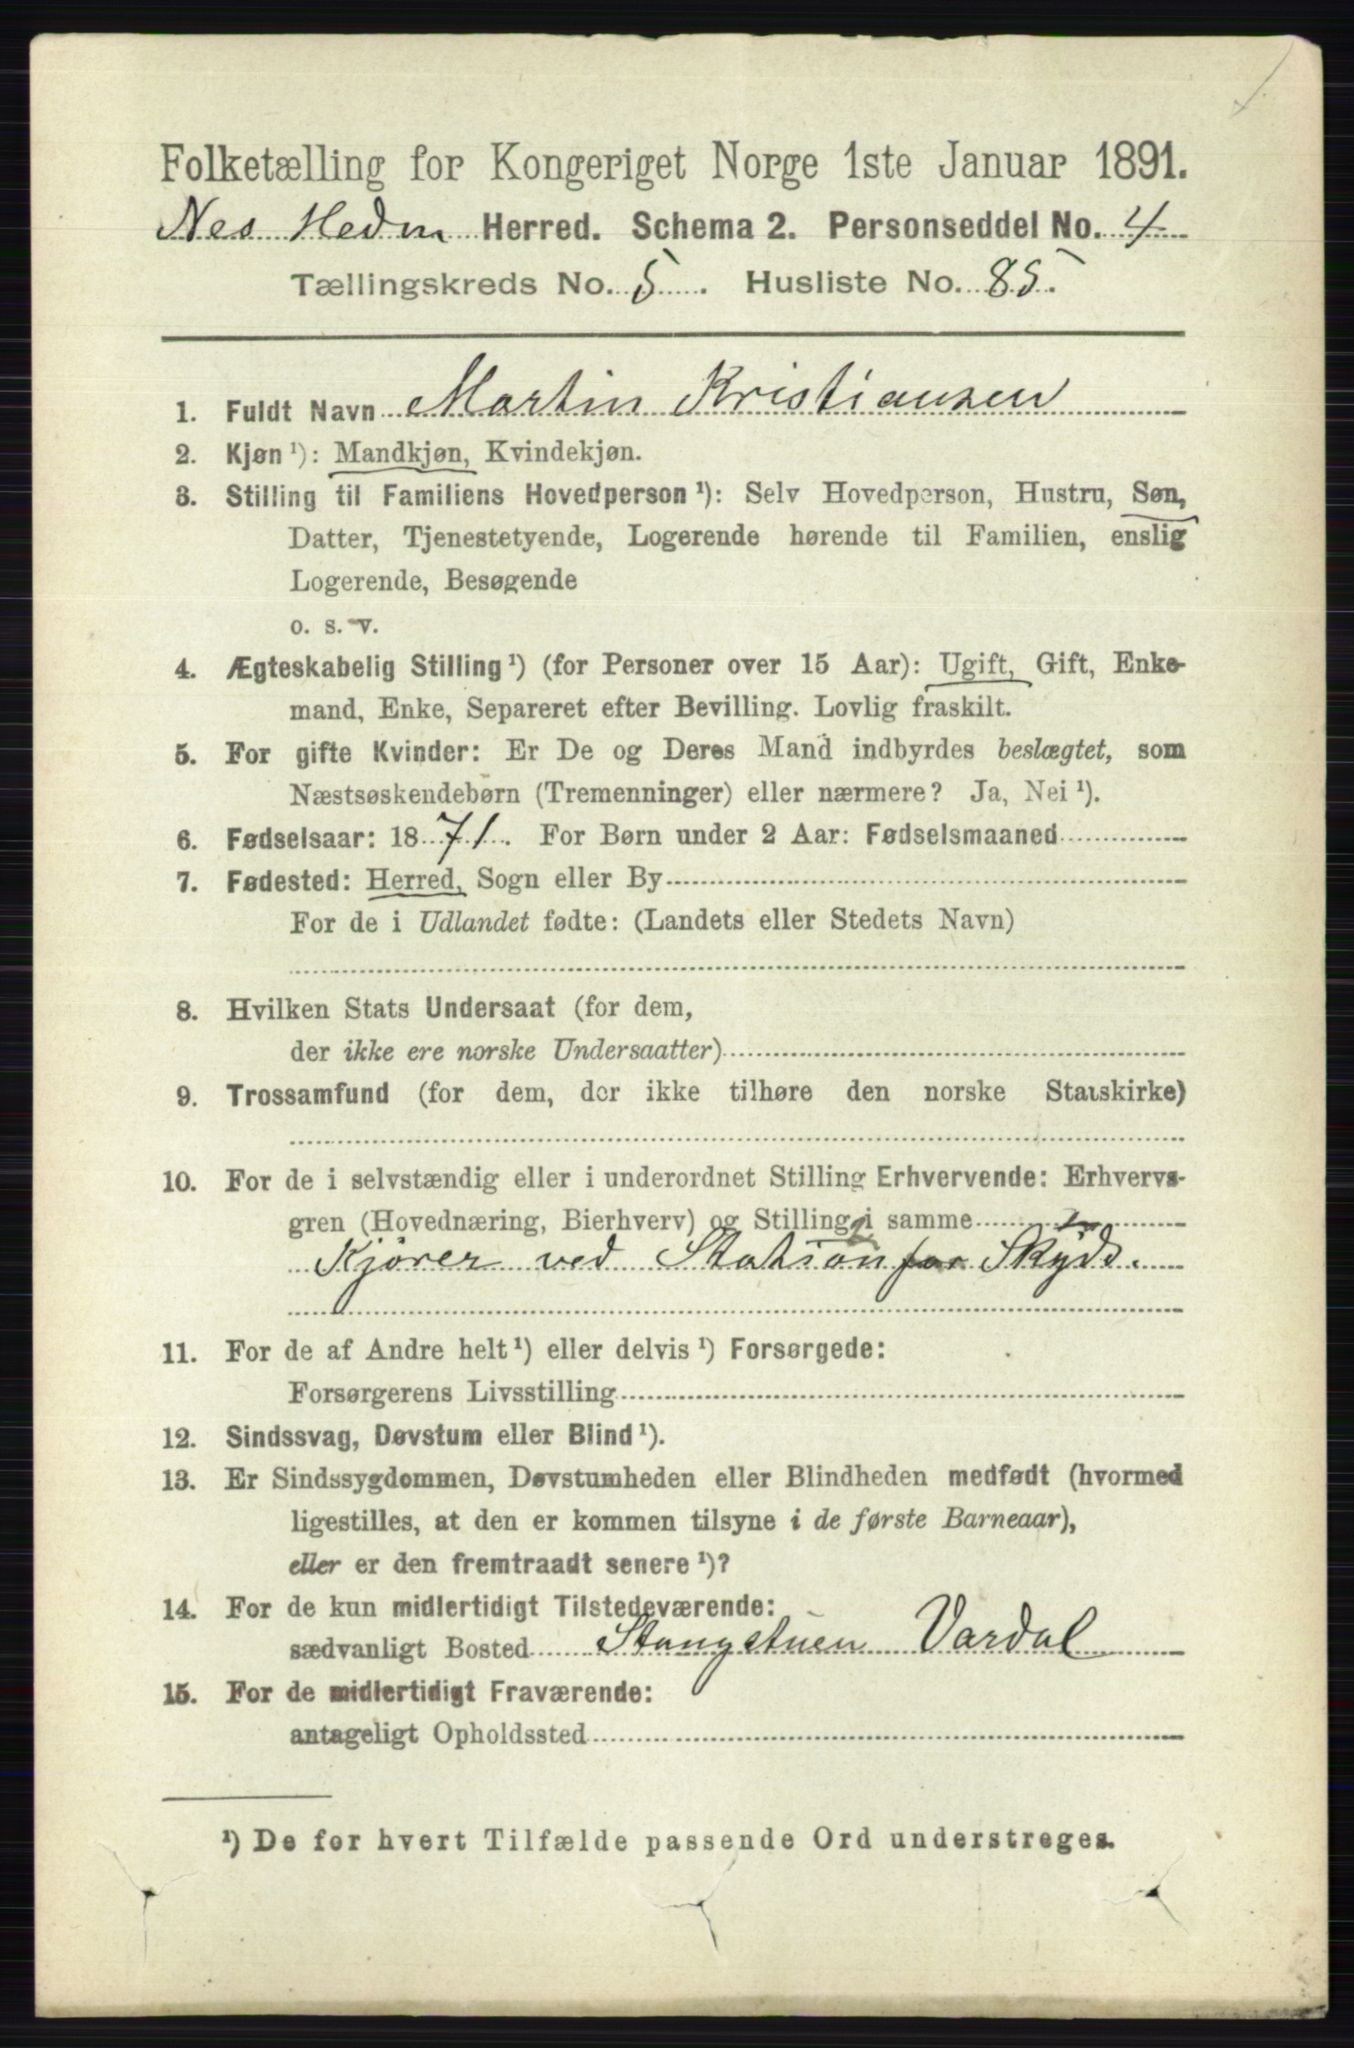 Folketælling for Kongeriget Norge 1ste Januar 1891.
Nes Hedm Herred. Schema 2. Personseddel No. 4
Tællingskreds No. 5. Husliste No. 85.
1. Fuldt Navn Martin Kristiansen
2. Kjøn ¹): Mandkjøn, Kvindekjøn.
3. Stilling til Familiens Hovedperson ¹): Selv Hovedperson, Hustru, Søn,
Datter, Tjenestetyende, Logerende hørende til Familien, enslig
Logerende, Besøgende
o. s. v.
4. Ægteskabelig Stilling ¹) (for Personer over 15 Aar): Ugift, Gift, Enke-
mand, Enke, Separeret efter Bevilling. Lovlig fraskilt.
5. For gifte Kvinder: Er De og Deres Mand indbyrdes beslægtet, som
Næstsøskendebørn (Tremenninger) eller nærmere? Ja, Nei ¹).
6. Fødselsaar: 1871. For Børn under 2 Aar: Fødselsmaaned
7. Fødested: Herred, Sogn eller By
For de i Udlandet fødte: (Landets eller Stedets Navn)
8. Hvilken Stats Undersaat (for dem,
der ikke ere norske Undersaatter)
9. Trossamfund (for dem, der ikke tilhøre den norske Statskirke)
10. For de i selvstændig eller i underordnet Stilling Erhvervende: Erhvervs-
gren (Hovednæring, Bierhverv) og Stilling i samme
Kjører ved Station for Skyds.
11. For de af Andre helt ¹) eller delvis ¹) Forsørgede:
Forsørgerens Livsstilling
12. Sindssvag, Døvstum eller Blind ¹).
13. Er Sindssygdommen, Døvstumheden eller Blindheden medfødt (hvormed
ligestilles, at den er kommen tilsyne i de første Barneaar),
eller er den fremtraadt senere ¹)?
14. For de kun midlertidigt Tilstedeværende:
sædvanligt Bosted Stangstuen Vardal
15. For de midlertidigt Fraværende:
antageligt Opholdssted
¹) De for hvert Tilfælde passende Ord understreges.